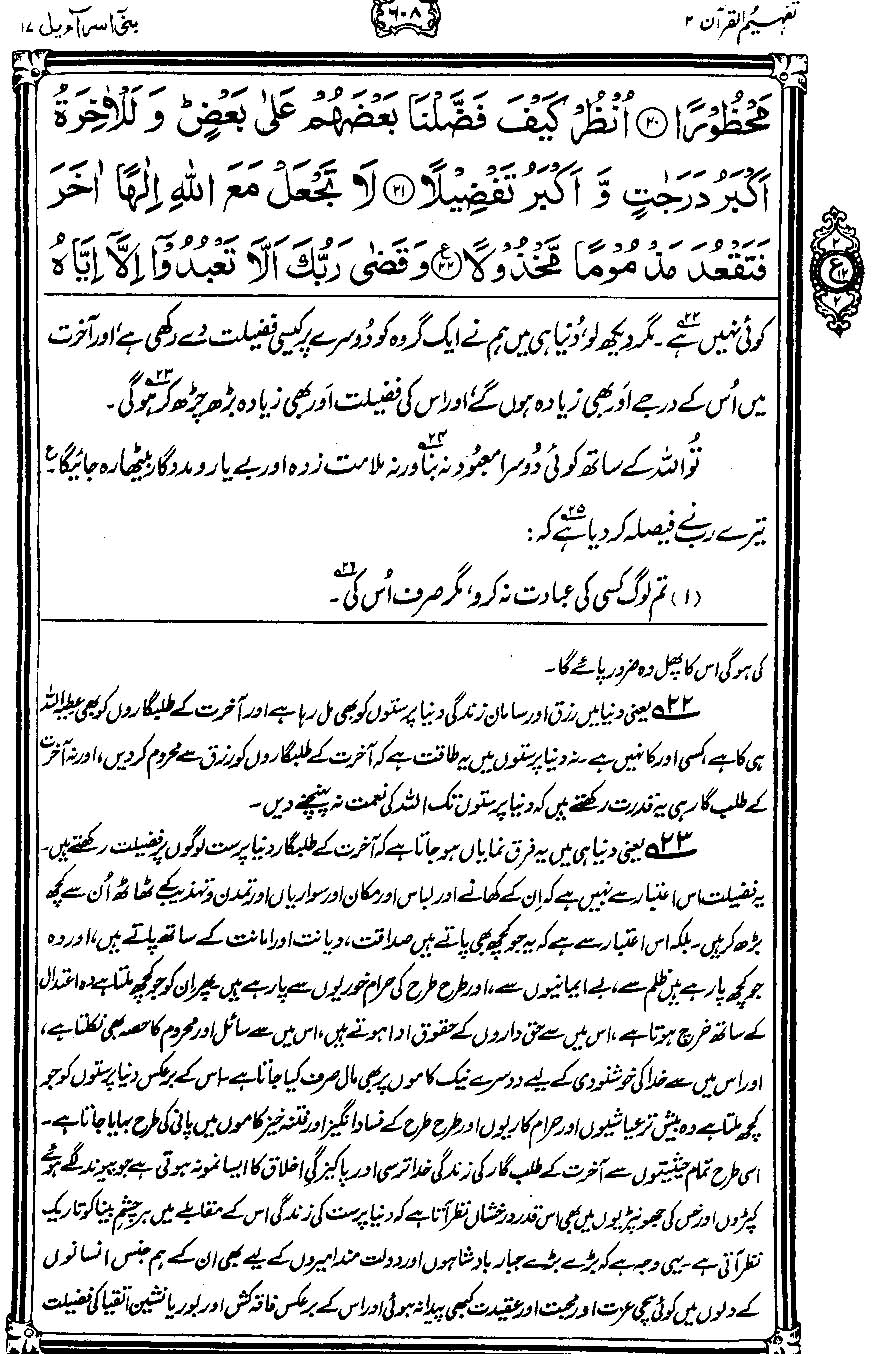 تفہیم القرآن ۲
۶۰۸
بنی اسرآءیل ۱۷
مَحْظُوْرًا ﴿۲۰﴾ اُنْظُرْ كَيْفَ فَضَّلْنَا بَعْضَهُمْ عَلٰى بَعْضٍ ؕ وَ لَلْاٰخِرَةُ
اَكْبَرُ دَرَجٰتٍ وَّ اَكْبَرُ تَفْضِيْلًا ﴿۲۱﴾ لَا تَجْعَلْ مَعَ اللّٰهِ اِلٰهًا اٰخَرَ
فَتَقْعُدَ مَذْمُوْمًا مَّخْذُوْلًا ﴿۲۲﴾ ع وَ قَضٰى رَبُّكَ اَلَّا تَعْبُدُوْۤا اِلَّاۤ اِيَّاهُ
۲
ع ۱۲
۲
کوئی نہیں ہے۲۲۔ مگر دیکھ لو، دُنیا ہی میں ہم نے ایک گروہ کو دُوسرے پر کیسی فضیلت دے رکھی ہے، اور آخرت
میں اُس کے درجے اَور بھی زیادہ ہوں گے، اور اس کی فضیلت اَور بھی زیادہ بڑھ چڑھ کر ہوگی۲۳۔
تُو اللہ کے ساتھ کوئی دُوسرا معبُود نہ بنا۲۴ ورنہ ملامت زدہ اور بے یار و مددگار بیٹھا رہ جائیگا۔ ع
تیرے رب نے فیصلہ کر دیا ہے۲۵ کہ:
(۱) تم لوگ کسی کی عبادت نہ کرو، مگر صرف اُس کی۲۶۔
کی ہوگی اس کا پھل وہ ضرور پائے گا۔
۲۲ یعنی دنیا میں رزق اور سامان زندگی دنیا پرستوں کو بھی مل رہا ہے اور آخرت کے طلبگاروں کو بھی عطیہ اللہ
ہی کا ہے، کسی اور کا نہیں ہے۔ نہ دنیا پرستوں میں یہ طاقت ہے کہ آخرت کے طلبگاروں کو رزق سے محروم کر دیں، اور نہ آخرت
کے طلب گار ہی یہ قدرت رکھتے ہیں کہ دنیا پرستوں تک اللہ کی نعمت نہ پہنچنے دیں۔
۲۳ یعنی دنیا ہی میں یہ فرق نمایاں ہو جاتا ہے کہ آخرت کے طلبگار دنیا پرست لوگوں پر فضیلت رکھتے ہیں۔
یہ فضیلت اس اعتبار سے نہیں ہے کہ اِن کے کھانے اور لباس اور مکان اور سواریاں اور تمدن و تہذیب کے ٹھاٹھ اُن سے کچھ
بڑھ کر ہیں۔ بلکہ اس اعتبار سے ہے کہ یہ جو کچھ بھی پاتے ہیں صداقت، دیانت اور امانت کے ساتھ پاتے ہیں، اور وہ
جو کچھ پا رہے ہیں ظلم سے، بے ایمانیوں سے، اور طرح طرح کی حرام خوریوں سے پا رہے ہیں۔ پھر ان کو جو کچھ ملتا ہے وہ اعتدال
کے ساتھ خرچ ہوتا ہے، اس میں سے حق داروں کے حقوق ادا ہوتے ہیں، اس میں سے سائل اور محروم کا حصہ بھی نکلتا ہے،
اور اس میں سے خدا کی خوشنودی کے لیے دوسرے نیک کاموں پر بھی مال صرف کیا جاتا ہے۔ اس کے برعکس دنیا پرستوں کو جو
کچھ ملتا ہے وہ بیش تر عیاشیوں اور حرام کاریوں اور طرح طرح کے فساد انگیز اور فتنہ خیز کاموں میں پانی کی طرح بہایا جاتا ہے۔
اسی طرح تمام حیثیتوں سے آخرت کے طلب گار کی زندگی خدا ترسی اور پاکیزگیِ اخلاق کا ایسا نمونہ ہوتی ہے جو پیوند لگے ہوئے
کپڑوں اور خس کی جھونپڑیوں میں بھی اس قدر درخشاں نظر آتا ہے کہ دنیا پرست کی زندگی اس کے مقابلے میں ہر چشمِ بینا کو تاریک
نظر آتی ہے۔ یہی وجہ ہے کہ بڑے بڑے جبار بادشاہوں اور دولت مند امیروں کے لیے بھی ان کے ہم جنس انسانوں
کے دلوں میں کوئی سچی عزت اور محبت اور عقیدت کبھی پیدا نہ ہوئی اور اس کے برعکس فاقہ کش اور بوریا نشین اتقیا کی فضیلت